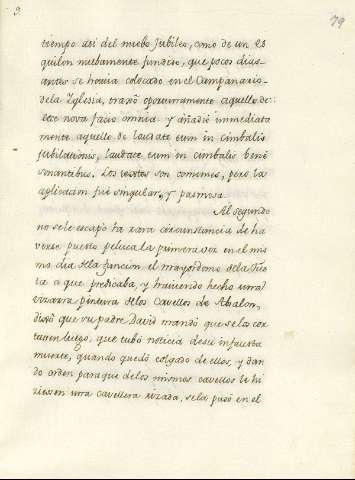 9
79
tiempo asi del nuebo Jubileo, como de un es
quilon nuebamente fundido, que pocos dias
antes se hauia colocado en el Campanario
dela Yglesia, traxo oportunamente aquello de:
ecce nova facio omnia y añadió immediata
mente aquello de laudate eum in cimbalis
jubilationis, laudate eum in cimbalis benè
sonantibus. Los textos son comunes, pero la
aplicacion fué singular, y pasmosa.
Al segundo
no sele escapó la rara circunstancia de ha
verse puesto peluca la primera vez en el mis
mo dia dela funcion el mayordomo dela Fies
ta a que predicaba, y haviendo hecho una
vizarra pintura delos Cavellos de Absalon,
dixo que su padre David mandó que selos cor
tasen luego, que tubo noticia desu infausta
muerte, quando quedó colgado de ellos, y dan
do orden para que delos mismos cavellos le hi
ziesen una cavellera rizada, sela puso en el